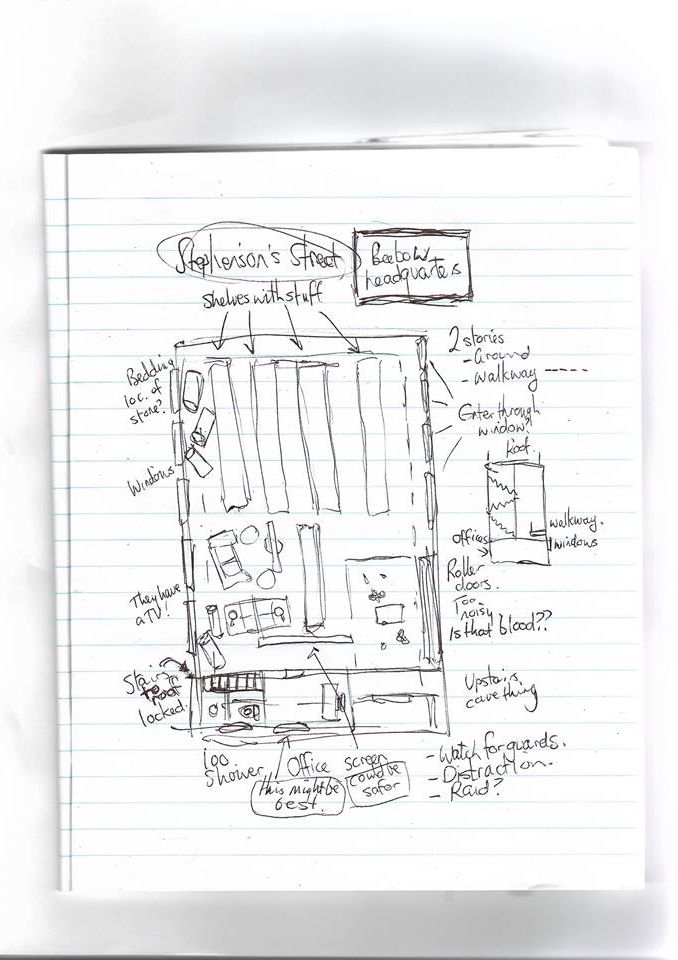 Stephenson's Street
headquarters
shelves with stuff
2 stories
- Ground
- Walkway -----
Bedding
loc. of
stone?
Enter through
window?
Roof
Windows
walkway.
windows
offices
Roller
doors.
Too
noisy
Is that blood??
They have
a TV!
Stairs
locked.
Upstairs
cave thing
loo
Shower
Office
screen
this might be
best.
could be
safer
- Watch for guards.
- Distraction.
- Raid?